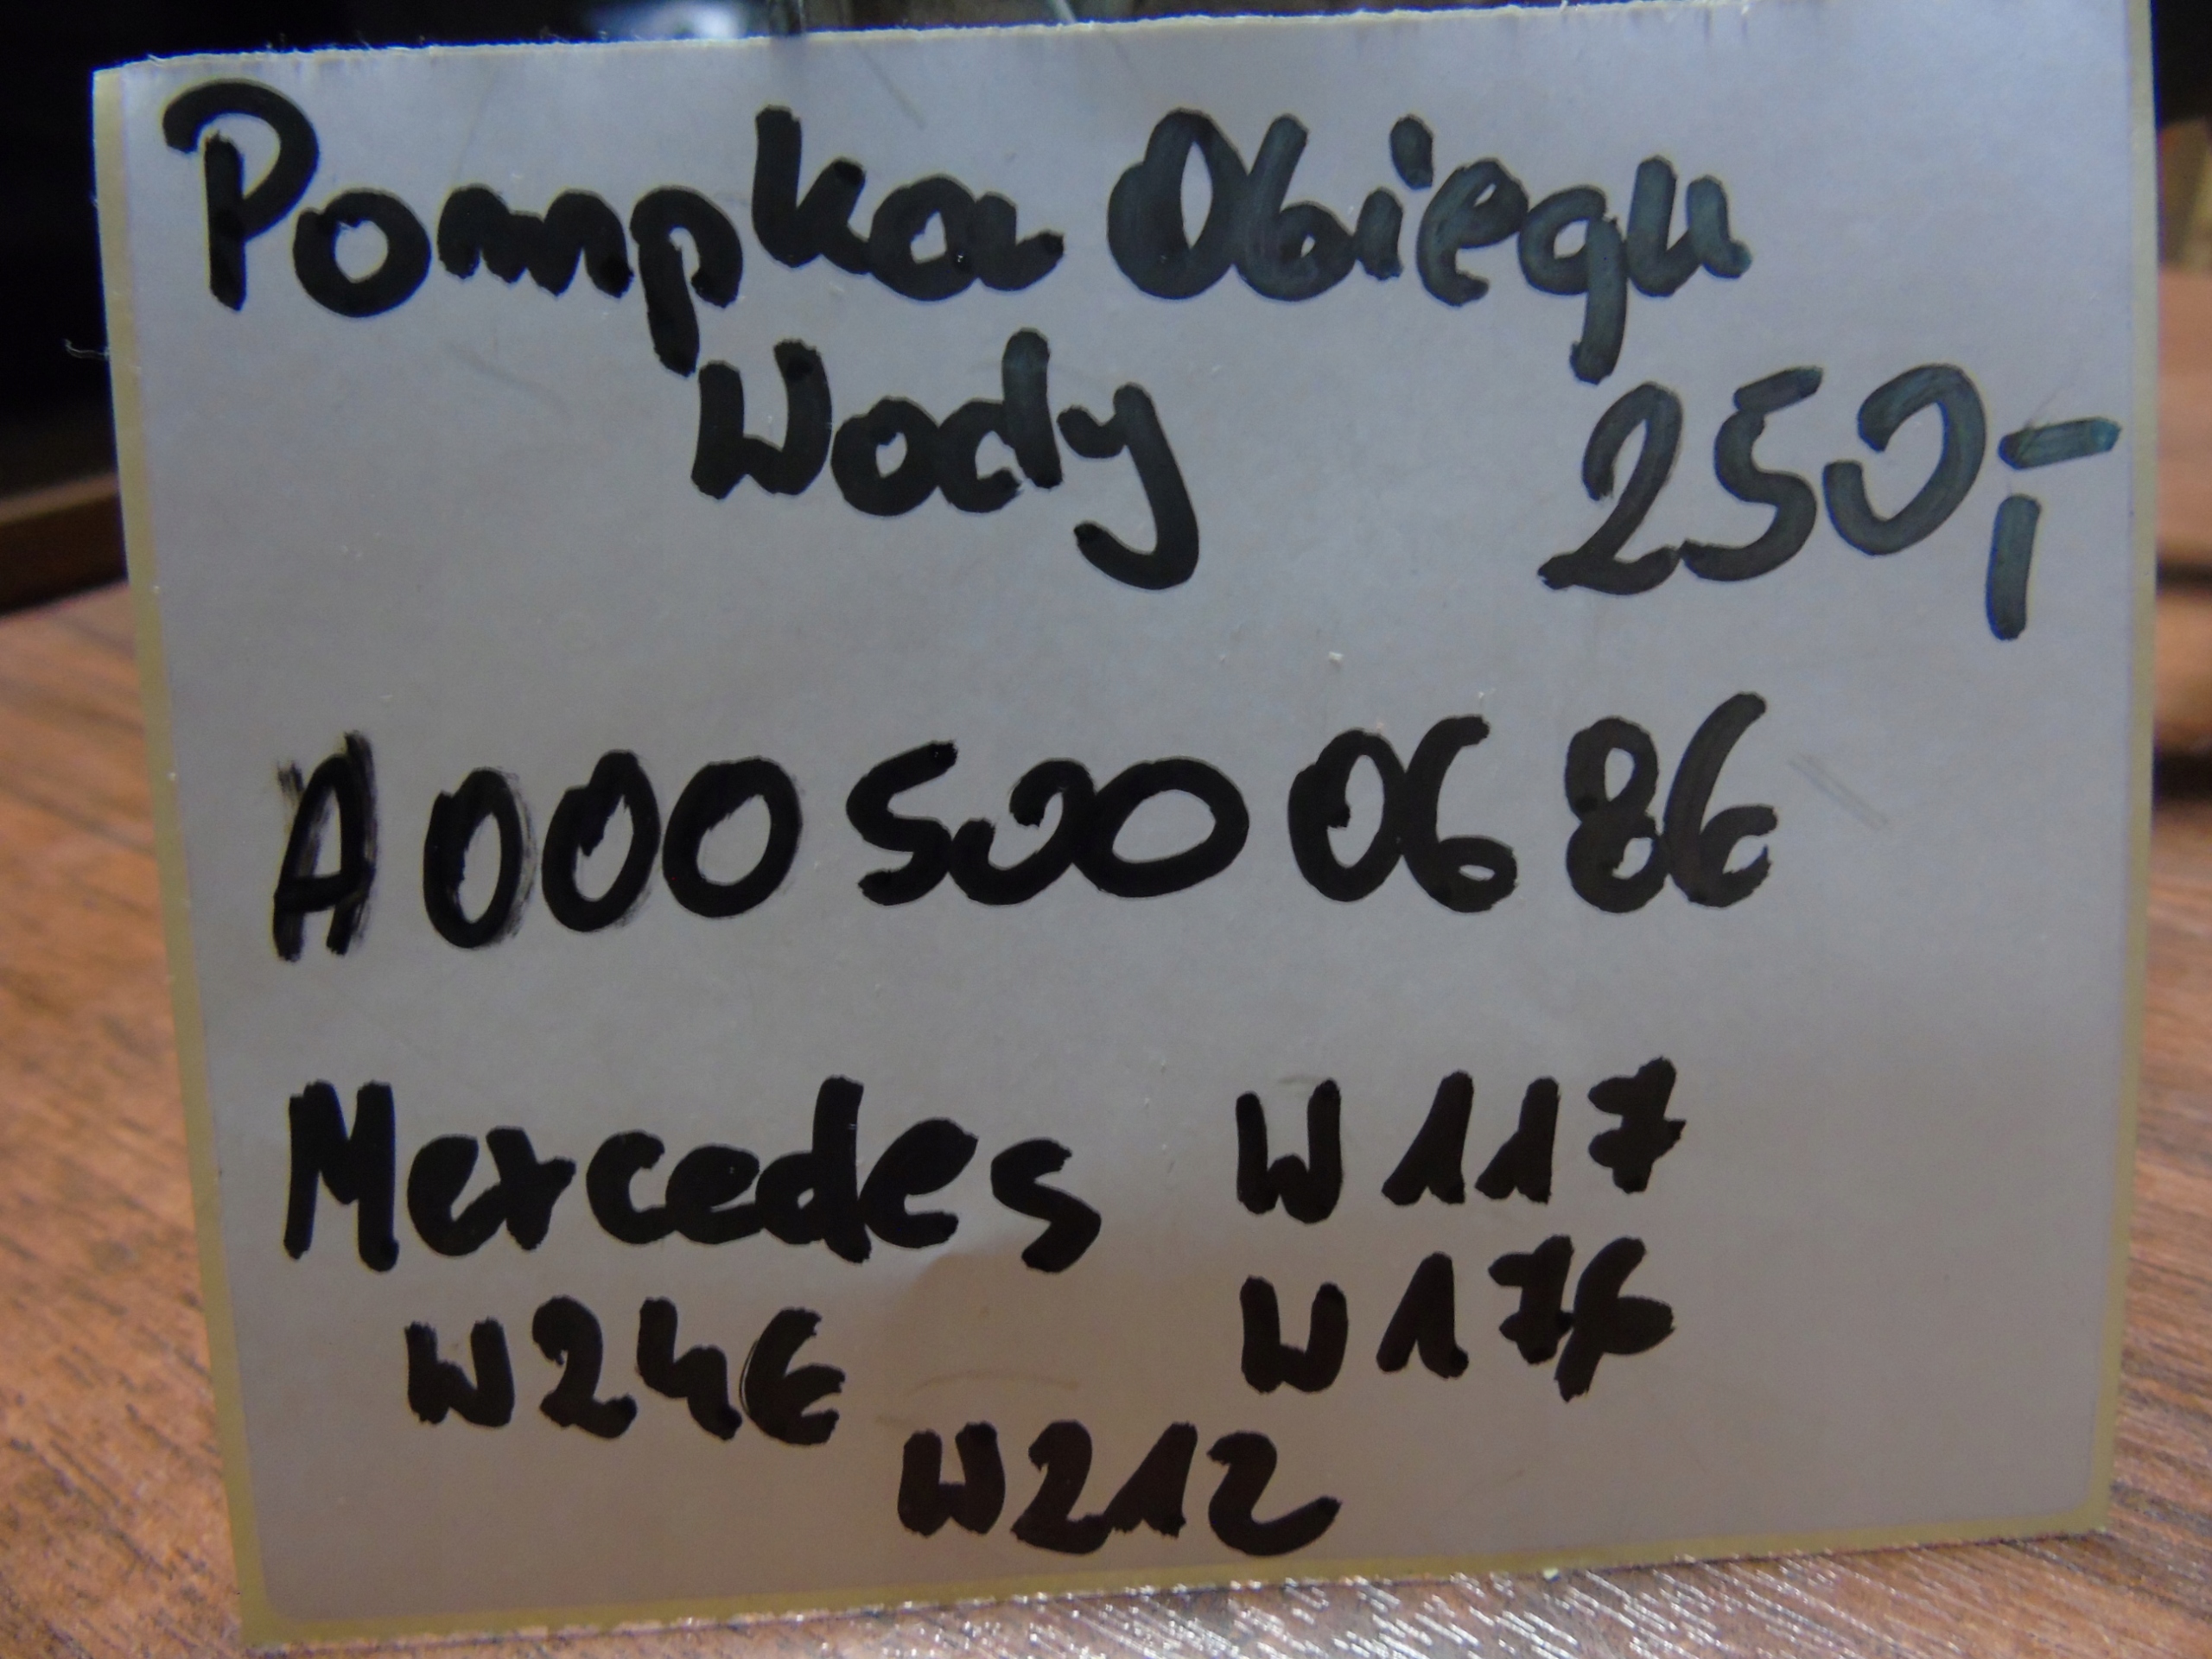 Pompka Obiegu
Wody 250,-
A000 500 06 86
Mercedes W117
W246 W176
W212